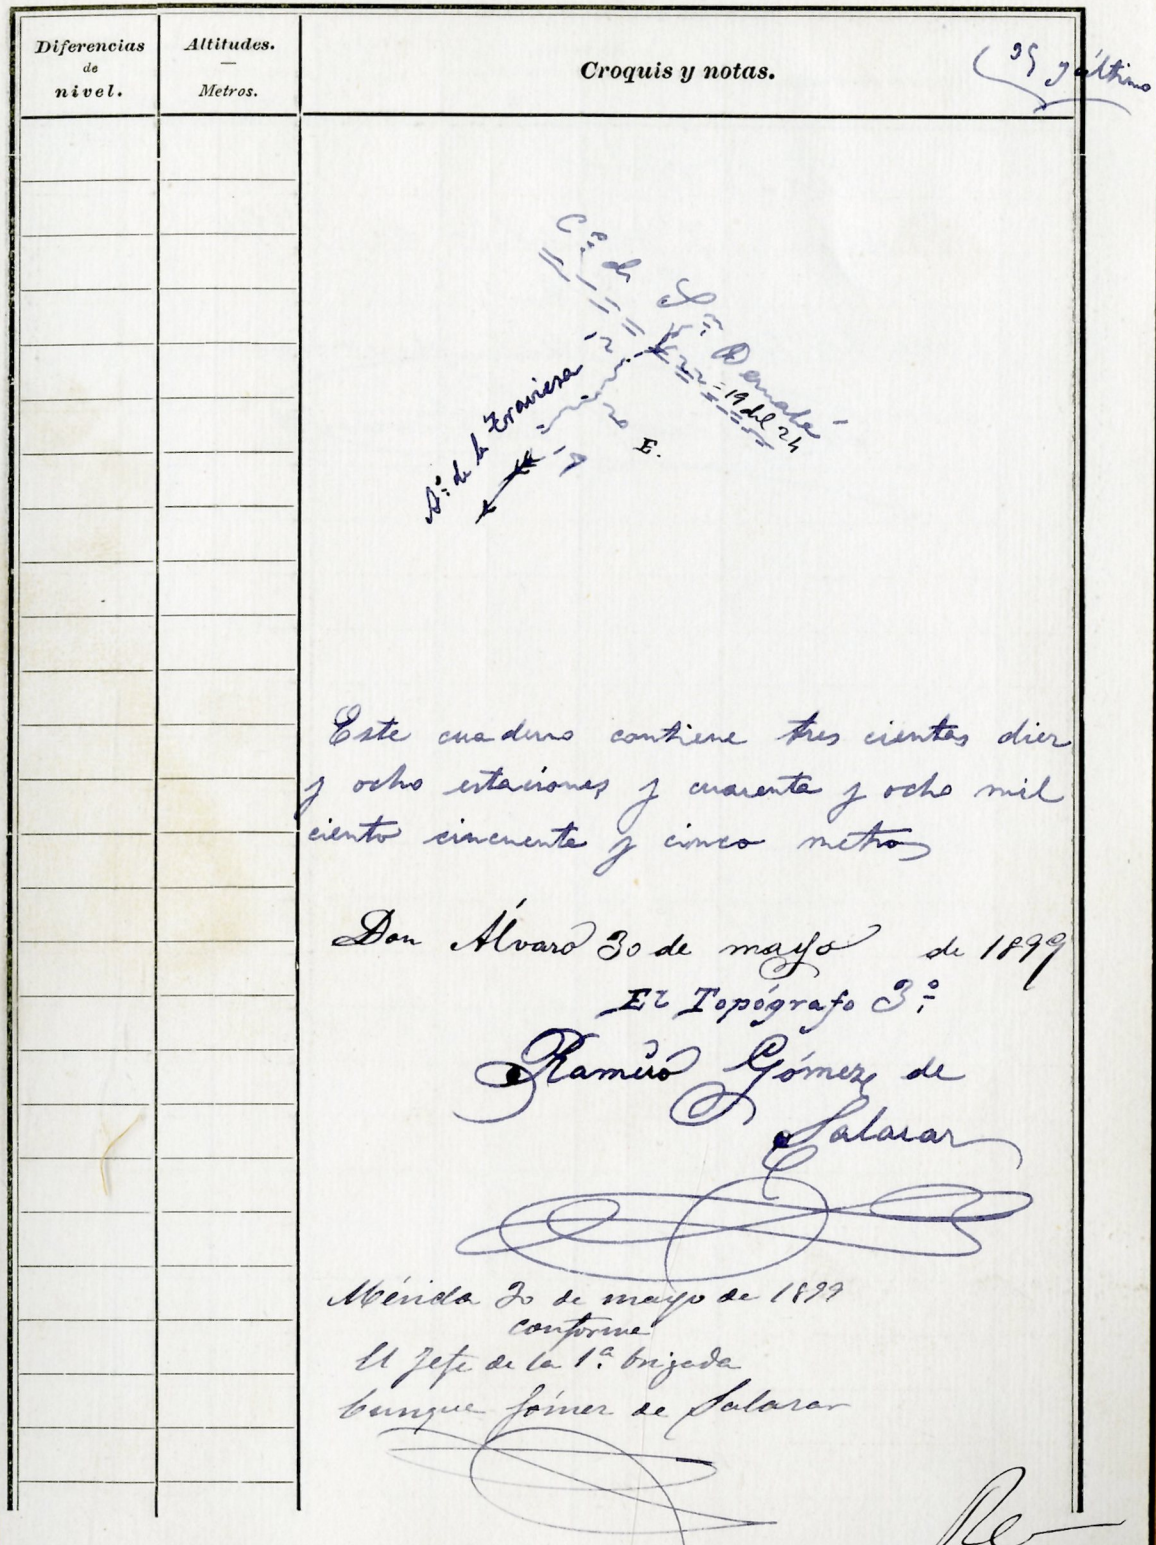 Diferencias
de
nivel.
Altitudes.
Metros.
Croquis y notas.
y último
Cº de Sª Bernabé
19 del 24
Aº de la Traviesa
E.
Este cuaderno contiene tres cientas diez
y ocho estaciones y cuarenta y ocho mil
ciento cincuenta y cinco metros
Don Álvaro 30 de mayo de 1899
El Topógrafo 3º
Ramiro Gómez de
Salazar
Mérida 30 de mayo de 1899
conforme
El Jefe de la 1ª brigada
Gómez de Salazar